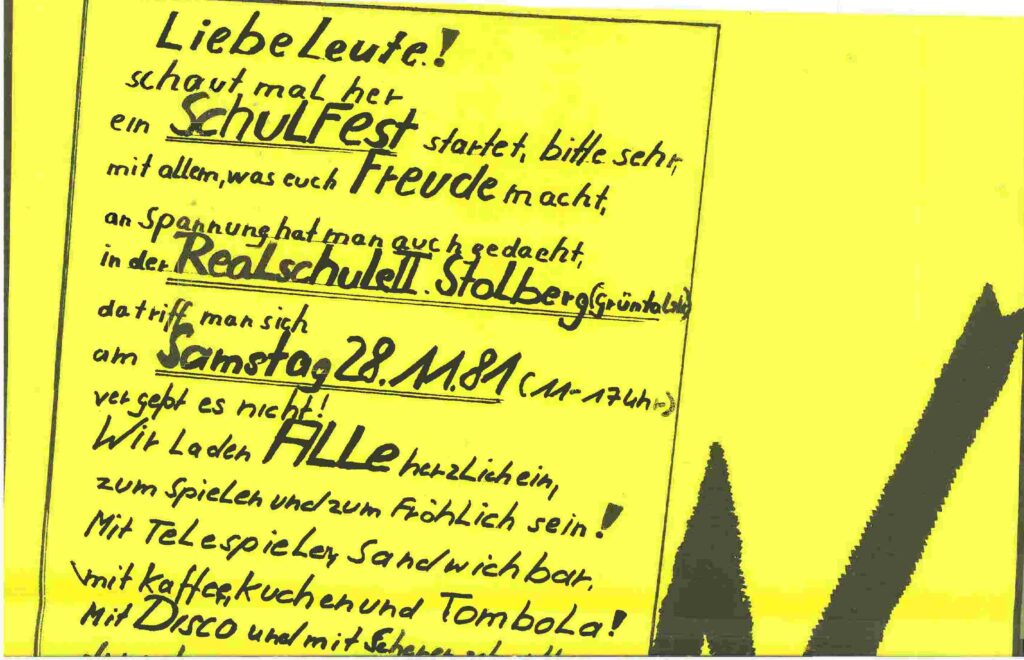 Liebe Leute!
schaut mal her
ein Schulfest startet, bitte sehr,
mit allem, was euch Freude macht,
an Spannung hat man auch gedacht,
in der Realschule II. Stolberg (Grüntalstr.)
da triff man sich
am Samstag 28.11.81 (11-17 Uhr)
vergeßt es nicht!
Wir laden ALLe herzlich ein,
zum Spielen und zum Fröhlich sein!
Mit Telespielen, Sandwichbar,
mit Kaffee, Kuchen und Tombola!
Mit Disco und mit